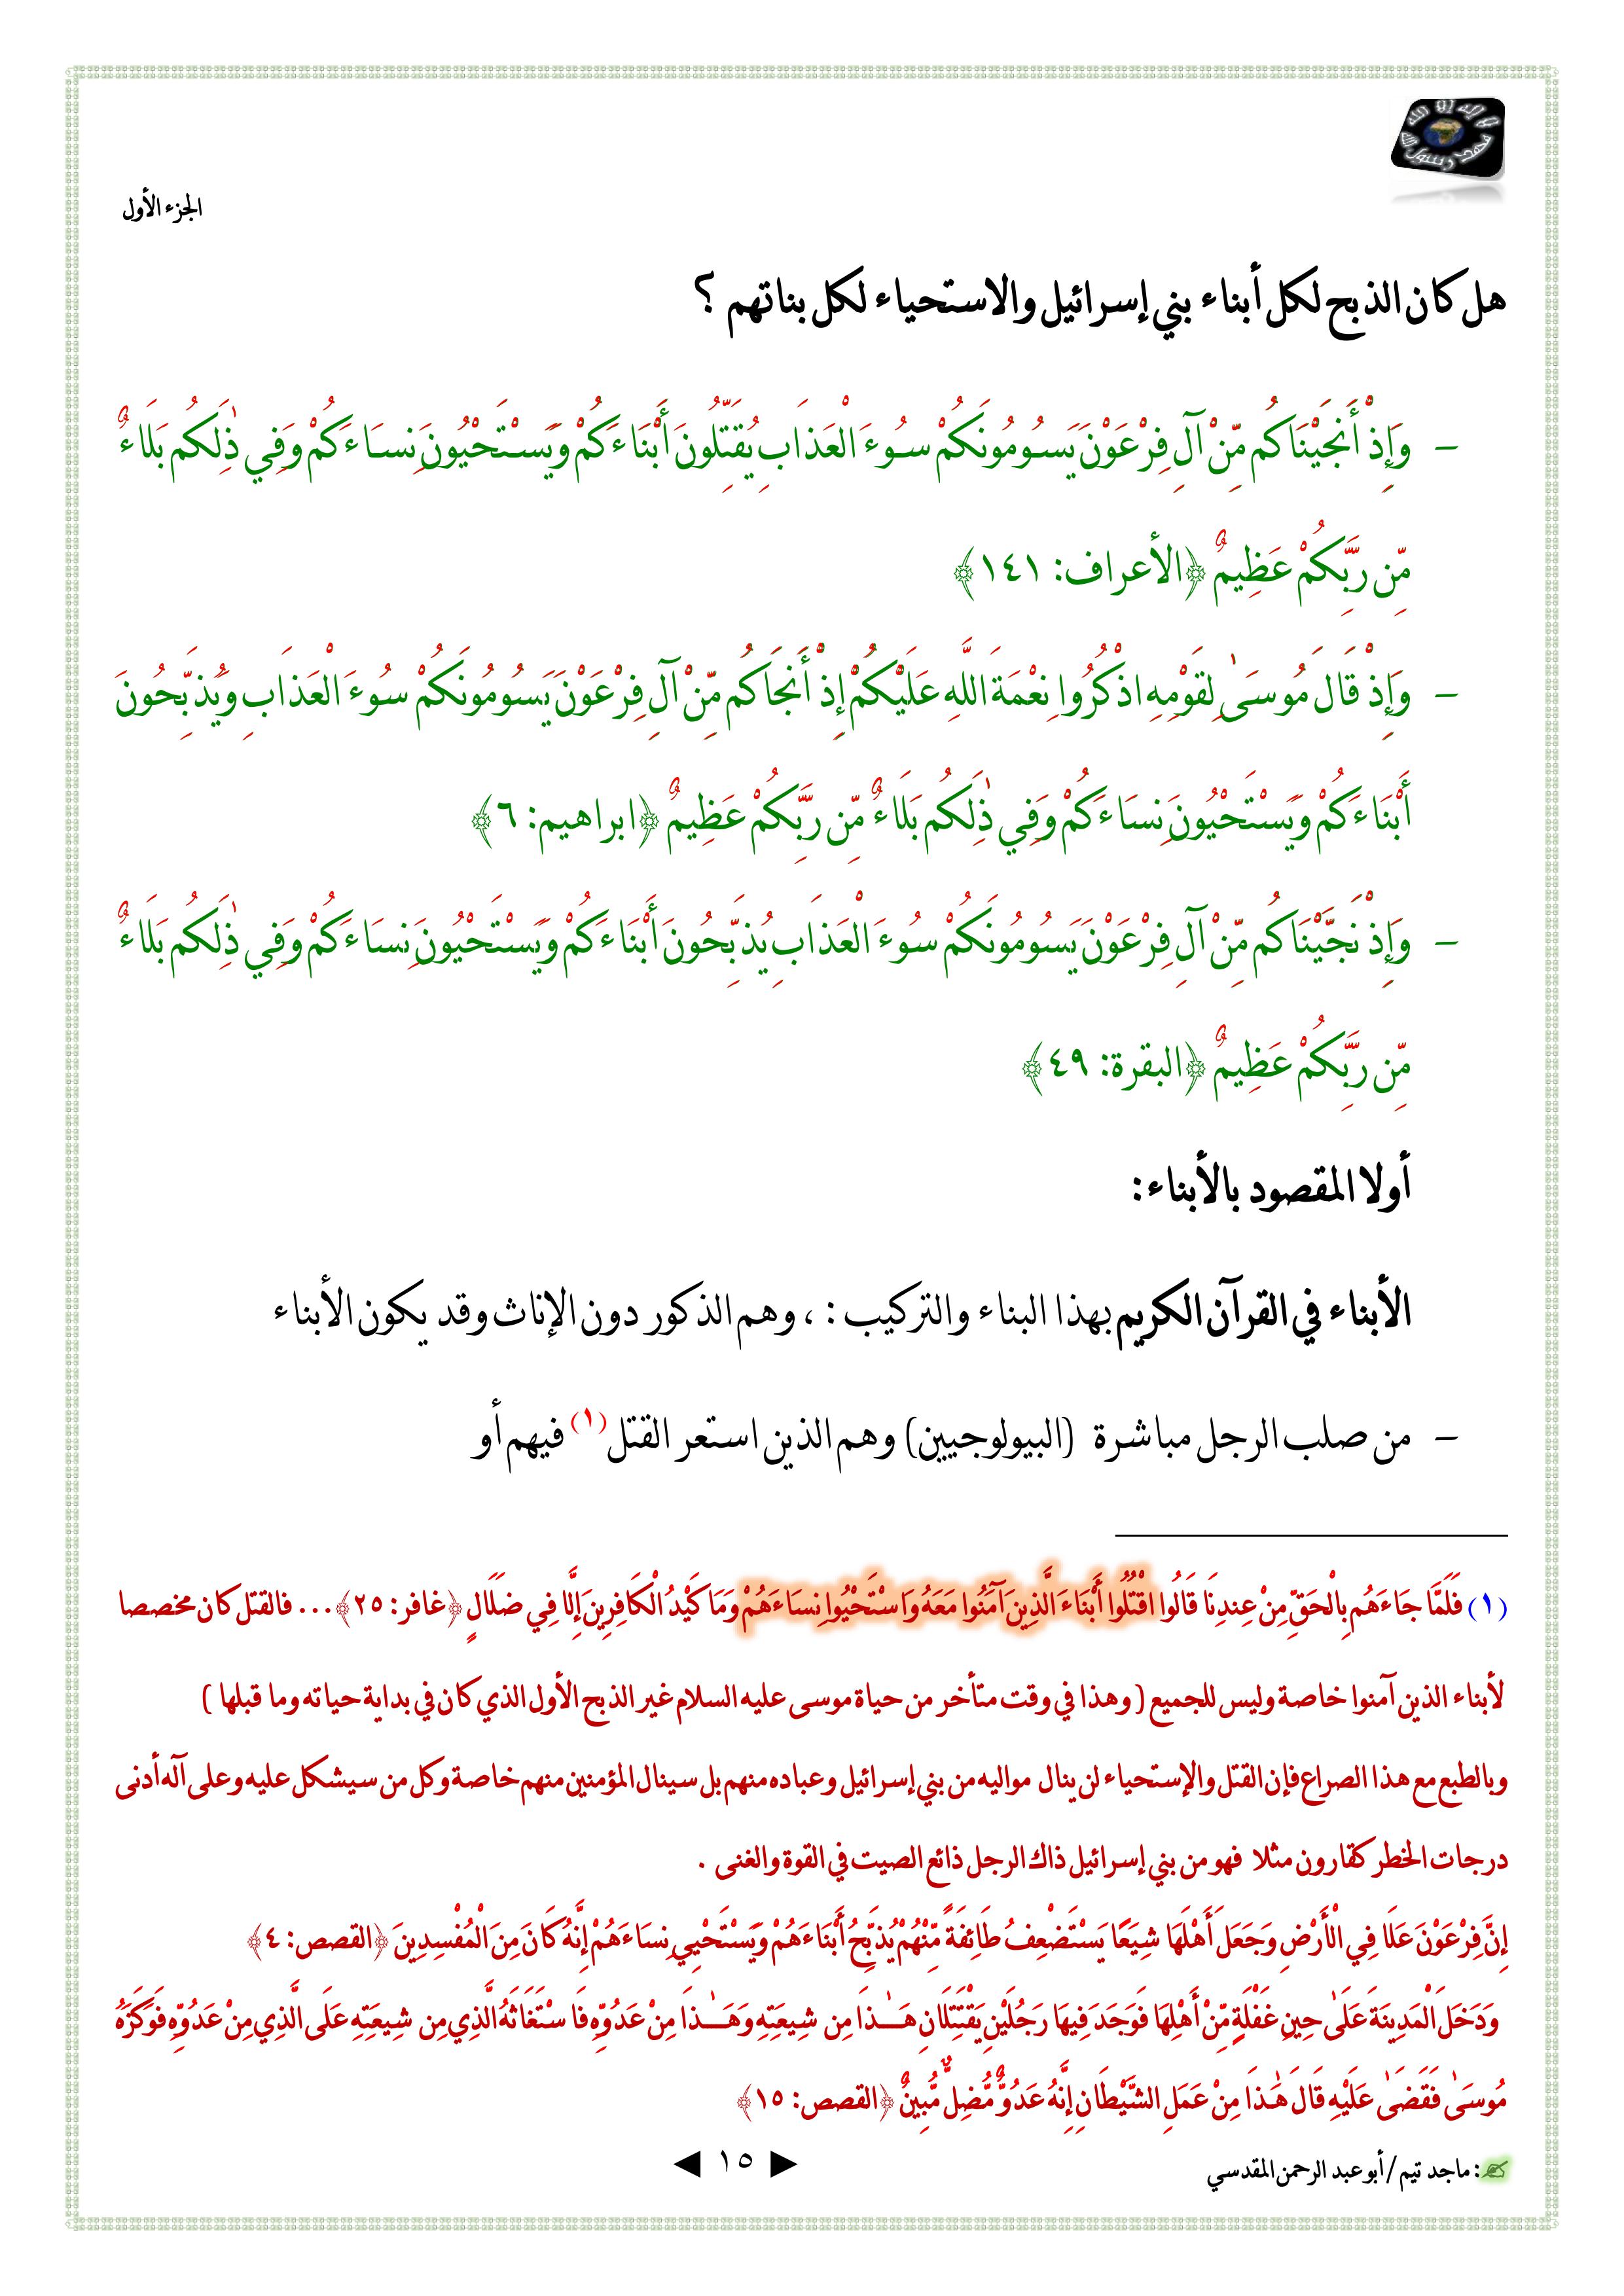 لا إله إلا الله محمد رسول الله
الجزء الأول
هل كان الذبح لكل أبناء بني إسرائيل والاستحياء لكل بناتهم ؟
– وَإِذْ أَنجَيْنَاكُم مِّنْ آلِ فِرْعَوْنَ يَسُومُونَكُمْ سُوءَ الْعَذَابِ يُقَتِّلُونَ أَبْنَاءَكُمْ وَيَسْتَحْيُونَ نِسَاءَكُمْ وَفِي ذَٰلِكُم بَلَاءٌ
مِّن رَّبِّكُمْ عَظِيمٌ ﴿الأعراف: ١٤١﴾
– وَإِذْ قَالَ مُوسَىٰ لِقَوْمِهِ اذْكُرُوا نِعْمَةَ اللَّهِ عَلَيْكُمْ إِذْ أَنجَاكُم مِّنْ آلِ فِرْعَوْنَ يَسُومُونَكُمْ سُوءَ الْعَذَابِ وَيُذَبِّحُونَ
أَبْنَاءَكُمْ وَيَسْتَحْيُونَ نِسَاءَكُمْ وَفِي ذَٰلِكُم بَلَاءٌ مِّن رَّبِّكُمْ عَظِيمٌ ﴿ابراهيم: ٦﴾
– وَإِذْ نَجَّيْنَاكُم مِّنْ آلِ فِرْعَوْنَ يَسُومُونَكُمْ سُوءَ الْعَذَابِ يُذَبِّحُونَ أَبْنَاءَكُمْ وَيَسْتَحْيُونَ نِسَاءَكُمْ وَفِي ذَٰلِكُم بَلَاءٌ
مِّن رَّبِّكُمْ عَظِيمٌ ﴿البقرة: ٤٩﴾
أولا المقصود بالأبناء:
الأبناء في القرآن الكريم بهذا البناء والتركيب : ، وهم الذكور دون الإناث وقد يكون الأبناء
– من صلب الرجل مباشرة (البيولوجيين) وهم الذين استعر القتل(١) فيهم أو
(١) فَلَمَّا جَاءَهُم بِالْحَقِّ مِنْ عِندِنَا قَالُوا اقْتُلُوا أَبْنَاءَ الَّذِينَ آمَنُوا مَعَهُ وَاسْتَحْيُوا نِسَاءَهُمْ وَمَا كَيْدُ الْكَافِرِينَ إِلَّا فِي ضَلَالٍ ﴿غافر: ٢٥﴾... فالقتل كان مخصصا
لأبناء الذين آمنوا خاصة وليس للجميع ( وهذا في وقت متأخر من حياة موسى عليه السلام غير الذبح الأول الذي كان في بداية حياته وما قبلها )
وبالطبع مع هذا الصراع فإن القتل والإستحياء لن ينال مواليه من بني إسرائيل وعباده منهم بل سينال المؤمنين منهم خاصة وكل من سيشكل عليه وعلى آله أدنى
درجات الخطر كقارون مثلا فهو من بني إسرائيل ذاك الرجل ذائع الصيت في القوة والغنى .
إِنَّ فِرْعَوْنَ عَلَا فِي الْأَرْضِ وَجَعَلَ أَهْلَهَا شِيَعًا يَسْتَضْعِفُ طَائِفَةً مِّنْهُمْ يُذَبِّحُ أَبْنَاءَهُمْ وَيَسْتَحْيِي نِسَاءَهُمْ إِنَّهُ كَانَ مِنَ الْمُفْسِدِينَ ﴿القصص: ٤﴾
وَدَخَلَ الْمَدِينَةَ عَلَىٰ حِينِ غَفْلَةٍ مِّنْ أَهْلِهَا فَوَجَدَ فِيهَا رَجُلَيْنِ يَقْتَتِلَانِ هَـٰذَا مِن شِيعَتِهِ وَهَـٰذَا مِنْ عَدُوِّهِ فَاسْتَغَاثَهُ الَّذِي مِن شِيعَتِهِ عَلَى الَّذِي مِنْ عَدُوِّهِ فَوَكَزَهُ
مُوسَىٰ فَقَضَىٰ عَلَيْهِ قَالَ هَٰذَا مِنْ عَمَلِ الشَّيْطَانِ إِنَّهُ عَدُوٌّ مُّضِلٌّ مُّبِينٌ ﴿القصص: ١٥﴾
: ماجد تيم / أبو عبد الرحمن المقدسي
١٥